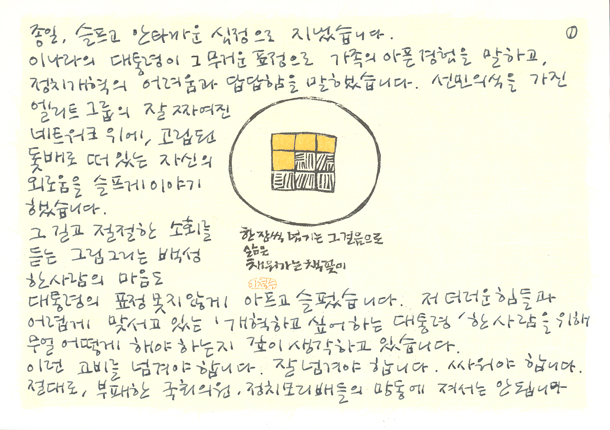 종일, 슬프고 안타까운 심정으로 지냈습니다.
①
이나라의 대통령이 그 무거운 표정으로 가족의 아픈 경험을 말하고,
정치개혁의 어려움과 답답함을 말했습니다. 선민의식을 가진
엘리트 그룹의 잘 짜여진
네트워크 위에, 고립된
돛배로 떠 있는 자신의
외로움을 슬프게 이야기
했습니다.
그 길고 절절한 소회를
듣는 그림그리는 백성
한사람의 마음도
한 장씩 넘기는 그 걸음으로
삶은
채워가는 책꽂이
대통령의 표정 못지 않게 아프고 슬펐습니다. 저 더러운 힘들과
어렵게 맞서고 있는 '개혁하고 싶어하는 대통령' 한 사람을 위해
무얼 어떻게 해야 하는지 깊이 생각하고 있습니다.
이런 고비를 넘겨야 합니다. 잘 넘겨야 합니다. 싸워야 합니다.
절대로, 부패한 국회의원, 정치모리배들의 망동에 져서는 안됩니다